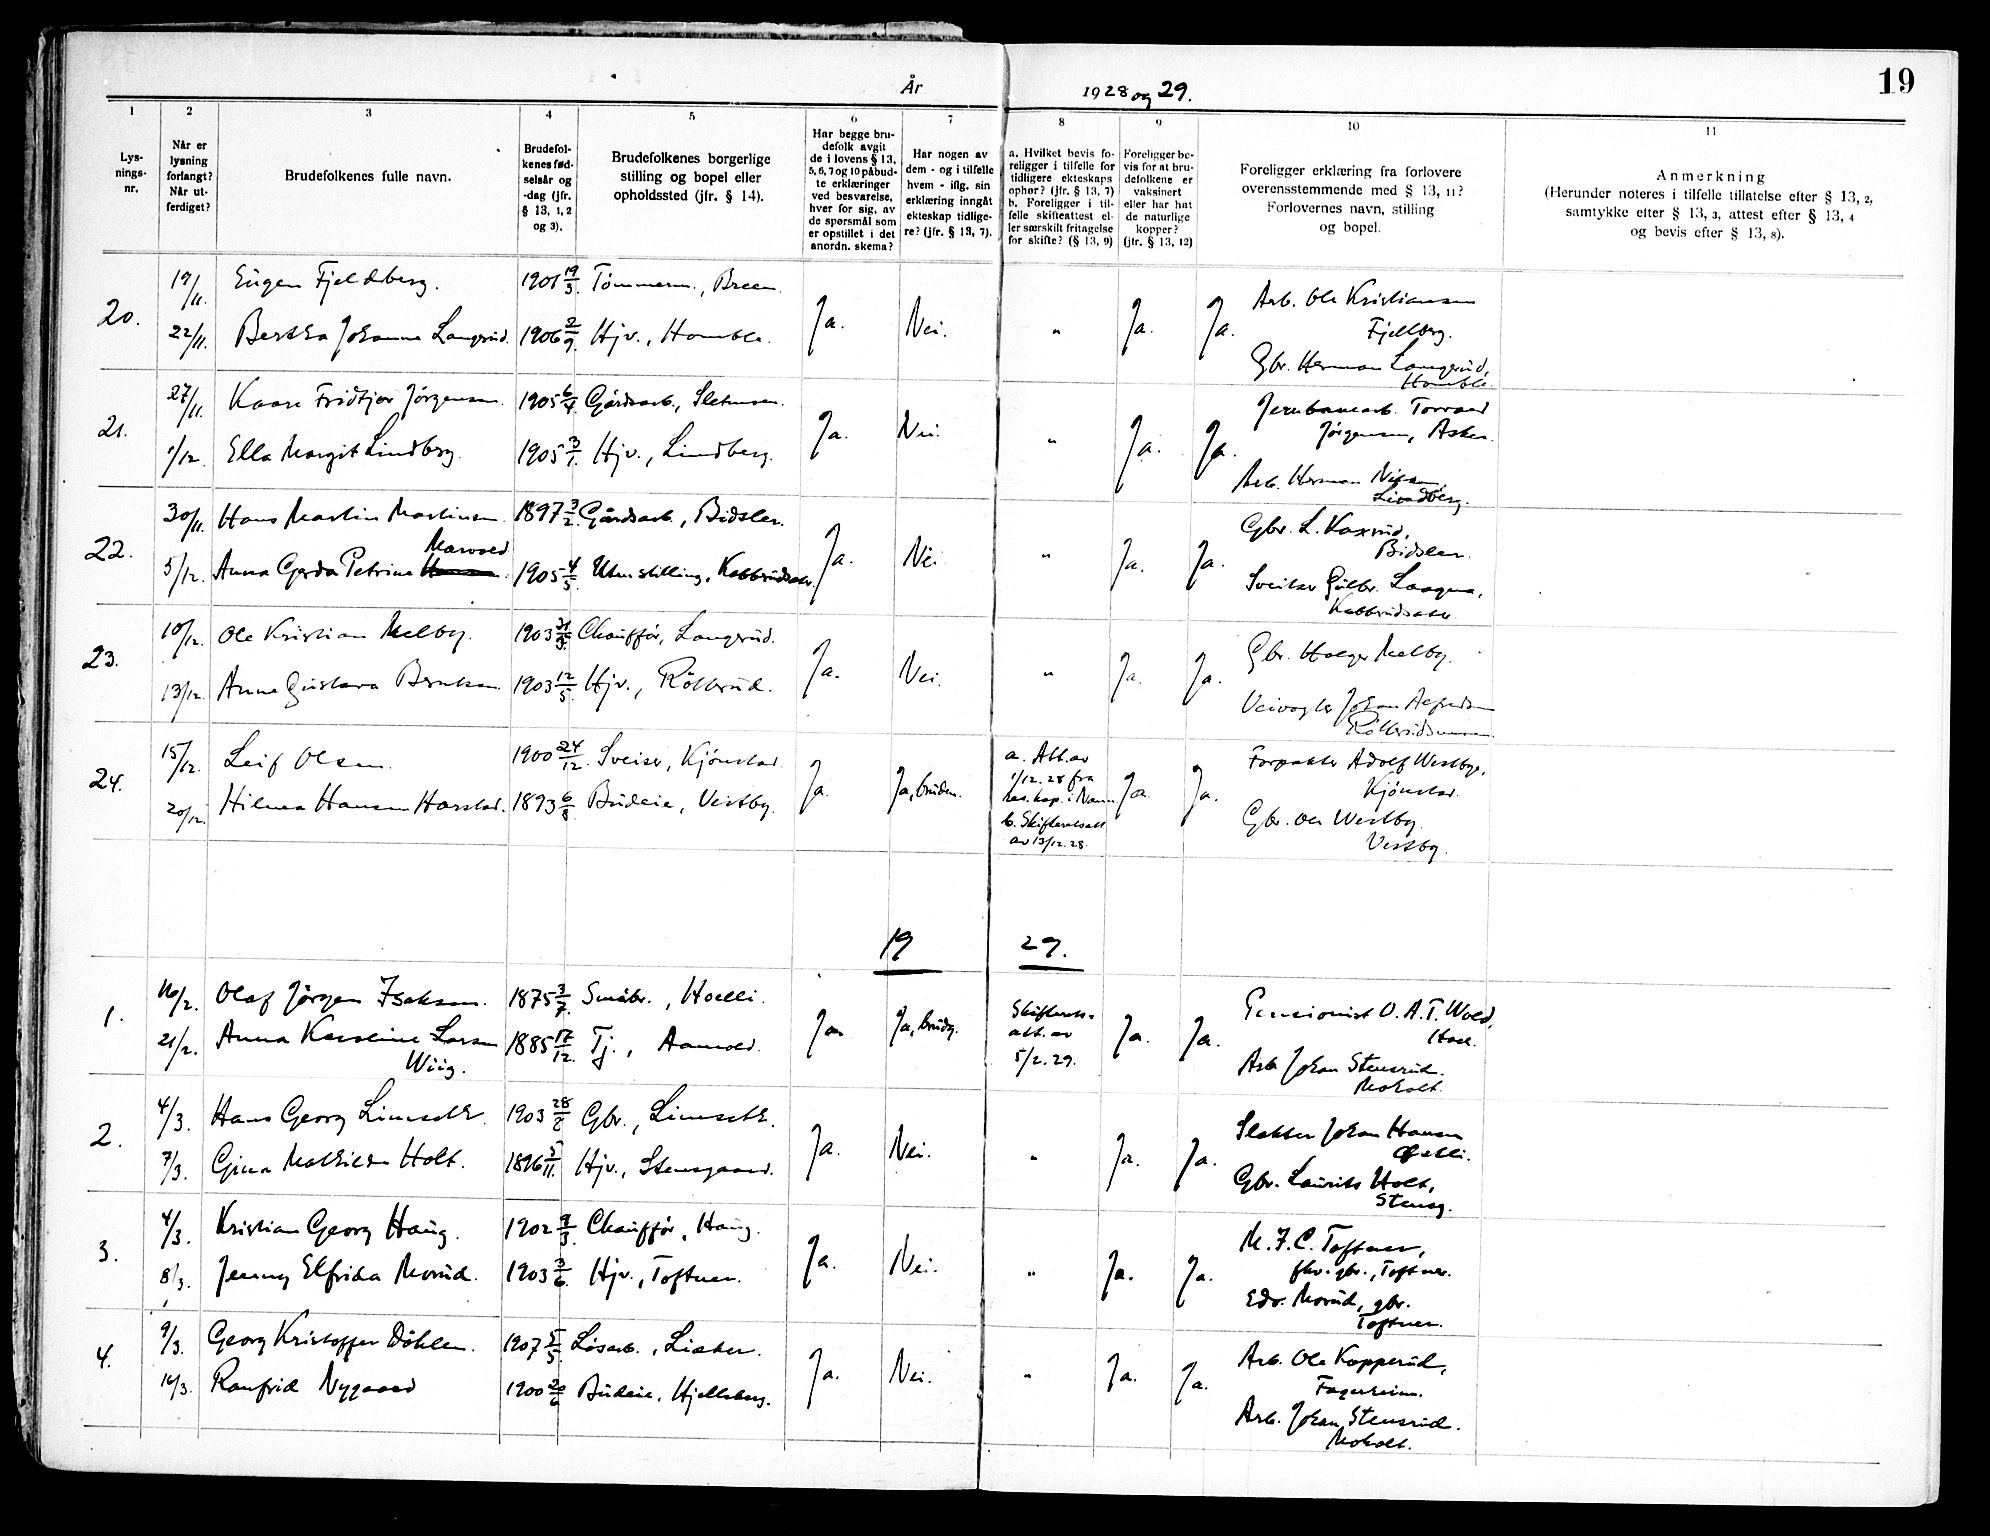 19
År 1928 og 29.
1 2 3 4 5 6 7 8 9 10 11
Lys-
nings-
nr.
Når er
lysning
forlangt?
Når ut-
ferdiget?
Brudefolkenes fulle navn.
Brudefol-
kenes fød-
selsår og
-dag (jfr.
§ 13, 1, 2
og 3).
Brudefolkenes borgerlige
stilling og bopel eller
opholdssted (jfr. § 14).
Har begge bru-
defolk avgit
de i lovens § 13,
5, 6, 7 og 10 påbud-
te erklæringer
ved besvarelse,
hver for sig, av
de spørsmål som
er opstillet i det
anordn. skema?
Har nogen av
dem - og i tilfelle
hvem - iflg. sin
erklæring inngåt
ekteskap tidlige-
re? (jfr. § 13, 7).
a. Hvilket bevis fo-
religger i tilfelle for
tidligere ekteskaps
ophør? (jfr. § 13, 7)
b. Foreligger i til-
felle skifteattest el-
ler særskilt fritagelse
for skifte? (§ 13, 9)
Foreligger be-
vis for at bru-
defolkene er
vaksinert
eller har hat
de naturlige
kopper?
(jfr. § 13, 12)
Foreligger erklæring fra forlovere
overensstemmende med § 13, 11?
Forlovernes navn, stilling
og bopel.
Anmerkning
(Herunder noteres i tilfelle tillatelse efter § 13, 2,
samtykke efter § 13, 3, attest efter § 13, 4
og bevis efter § 13, 8).
20. 19/11. Eugen Fjeldberg. 1901 19/3. Tømmerm., Breen. Ja. Nei. " Ja. Ja. Arb. Ole Kristiansen
Fjellberg.
22/11. Bertha Johanne Langrud. 1906 2/9. Hjv., Homble. Gbr. Herman Langerud,
Homble
21. 27/11. Kaare Fridtjov Jörgensen. 1905 6/4. Gårdsarb., Sletmoen. Ja. Nei. " Ja. Ja. Jernbanearb. Torvald
Jörgensen, Asker.
1/12. Ella Margit Lindberg. 1905 3/1. Hjv., Lindberg. Arb. Herman Nilsen,
Lindberg.
22. 30/11. Hans Martin Martinsen. 1897 3/2. Gårdsarb., Bidsler. Ja. Nei. " Ja. Ja. Gbr. L. Kaxrud,
Bidsler.
5/12. Anna Gerda Petrine 1905 4/5. Uten stilling, Kabbrudsæter. Sveitser Gulbr.
Kabbrudsæter
23. 10/12. Ole Kristian Melby. 1903 31/3. Chaufför, Langerud. Ja. Nei. " Ja. Ja. Gbr. Holger Melby.
13/12. Anna Gustava Berntsen. 1903 12/5. Hjv., Rölbrud. Veivogter Johan Alfredsen
24. 15/12. Leif Olsen. 1900 24/12. Sveiser, Kjönstad. Ja. Ja, bruden. a. Att. av
1/12. 28 fra
res. kap. i Nann.
b. Skifteretsatt
av 13/12. 28. Ja. Ja. Forpakter Adolf Westbye,
Kjönstad.
20/12. Hilma Hansen Harstad. 1893 6/8. Budeie, Vestby. Gbr. Ole Westby.
Vestby.
19 29.
1. 16/2. Olaf Jörgen Isaksen. 1875 3/7. Småbr., Hoelli. Ja. Ja, brudg. Skifterets-
att. av
5/2. 29. Ja. Ja. Pensionist O. A. T. Wold,
Hoel.
21/2. Anna Karoline Larsen
Wiig. 1885 17/12. Tj., Aamold. Arb. Johan Stensrud.
Moholt.
2. 4/3. Hans Georg Linseth. 1903 28/2. Gbr., Linseth. Ja. Nei. " Ja. Ja. Slakter Johan Hansen
7/3. Gina Mathilde Holt. 1896 5/11. Hjv., Stensgaard. Gbr. Laurits Holt,
Stensg.
3. 4/3. Kristian Georg Haug. 1902 9/3. Chaufför, Haug. Ja. Nei. " Ja. Ja. M. F. C. Toftner,
fhv. gbr., Toftner.
8/3. Jenny Elfrida Morud. 1903 3/6. Hjv., Toftner. Edv. Morud, gbr.
Toftner.
4. 9/3. Georg Kristoffer Döhlen. 1907 5/5. Lösarb., Liæter. Ja. Nei. " Ja. Ja. Arb. Ole Kopperud,
Fagerheim.
14/3. Ranfrid Nygaard 1900 20/6. Budeie, Hjelleberg. Arb. Johan Stensrud.
Moholt.